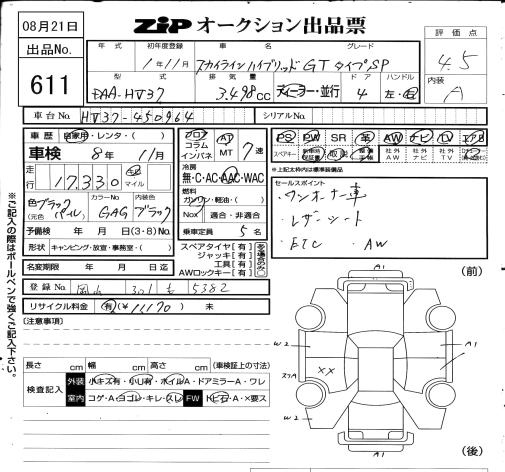 08月21日
ZiP オークション出品票
出品No.
611
年式 初年度登録 車名 グレード
1年11月 スカイラインハイブリッドGTタイプSP
型式 排気量 ドア ハンドル
DAA-HV37 3.498cc ディーラー・並行 4 左・右
評価点
4.5
内装
A
車台No. HV37-450964 シリアルNo.
車歴 自家用・レンタ・( )
車検 8年 11月
走行 17,330 km マイル
色 ブラック (元色 パール) カラーNo GAG ブラック
予備検 年 月 日(3・8)No.
形状 キャンピング・放宣・事務室・( )
名変期限 年 月 日迄
フロア コラム インパネ
AT MT 7速
冷房
無・C・AC・AAC・WAC
燃料
ガソリン・軽油・( )
Nox 適合・非適合
乗車定員 5名
スペアタイヤ【有】
ジャッキ【有】
工具【有】
AWロックキー【有】
PS PW SR 革 AW ナビ TV エアB
スペアキー 新車時保証書 取説 整備手帳 社外AW 社外ナビ 社外TV
※上記太枠内は標準装備品
セールスポイント
・ワンオーナー車
・レザーシート
・ETC ・AW
登録No. 岡山 301 5382
リサイクル料金 有(¥11,170) 未
〔注意事項〕
長さ cm 幅 cm 高さ cm (車検証上の寸法)
検査記入
外装 小キズ有・小凹有・ホイルA・ドアミラーA・ワレ
室内 コゲ・A・ヨゴレ・キレ・スレ FW トビ石・A・×要ス
※ご記入の際はボールペンで強くご記入下さい。
(前)
A1
W2
A1
スリA
××
W2
A1
(後)